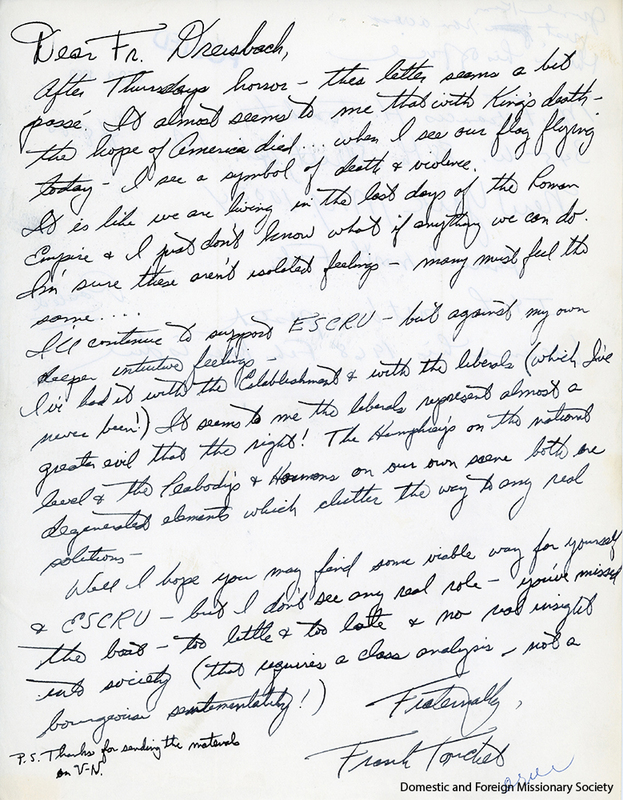 Dear Fr. Dreisbach,
After Thursdays horror - this letter seems a bit
passé. It almost seems to me that with King's death -
the hope of America died.... when I see our flag flying
today - I see a symbol of death & violence.
It is like we are living in the last days of the Roman
Empire & I just don't know what if anything we can do.
I'm sure these aren't isolated feelings - many must feel the
same....
I'll continue to support ESCRU - but against my own
deeper intuitive feelings -
I've had it with the Establishment & with the liberals (which I've
never been!) It seems to me the liberals represent almost a
greater evil that the right! The Humphreys on the national
level & the Peabodys & on our own scene both are
degenerated elements which clutter the way to any real
solutions -
Well I hope you may find some viable way for yourself
& ESCRU - but I don't see any real role - you've missed
the boat - too little & too late & no real insight
into society (that requires a class analysis - not a
bourgeoise sentimentality!)
Fraternally,
Frank
P.S. Thanks for sending the materials
on V-N.
Domestic and Foreign Missionary Society